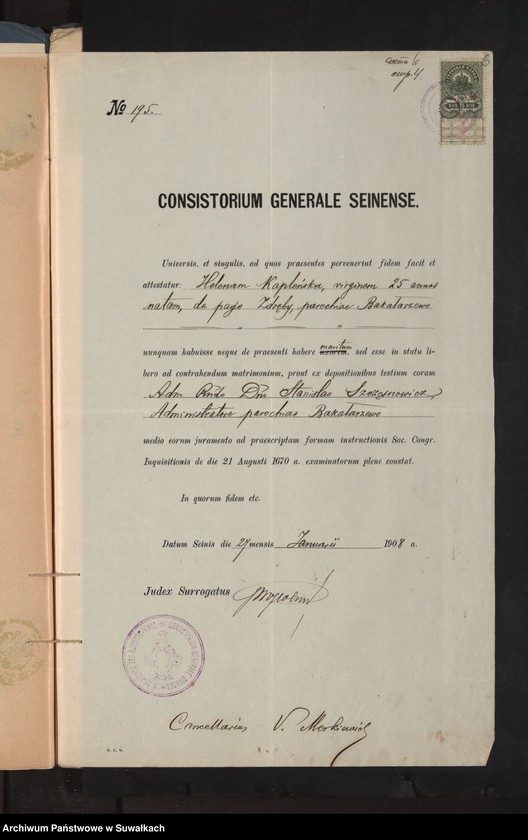 6
стр. 4.
№ 195.
CONSISTORIUM GENERALE SEINENSE.
Universis, et singulis, ad quos praesentes pervenerint fidem facit et
attestatur: Helenam Kaplońska, virginem 25 annos
natam, de pago Zdręby, parochiae Bakałarzewo
maritum
nunquam habuisse neque de praesenti habere uxorem, sed esse in statu li-
bero ad contrahendum matrimonium, prout ex depositionibus testium coram
Adm Rndo Dno Stanislao Szczęsnowicz
Administratore parochiae Bakałarzewo
medio eorum juramento ad praescriptam formam instructionis Sac. Congr.
Inquisitionis de die 21 Augusti 1670 a. examinatorum plene constat.
In quorum fidem etc.
Datum Seinis die 27 mensis Januarii 1908 a.
Judex Surrogatus
Cancellarius V. Merkiewicz
Archiwum Państwowe w Suwałkach